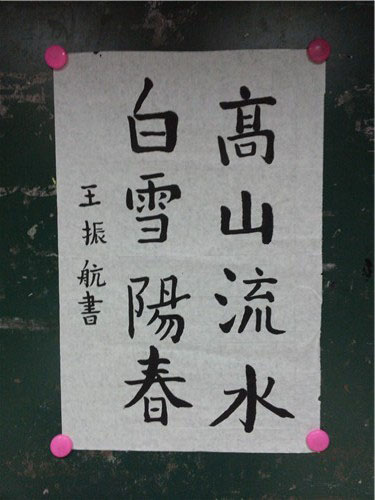 髙山流水
白雪陽春
王振航書